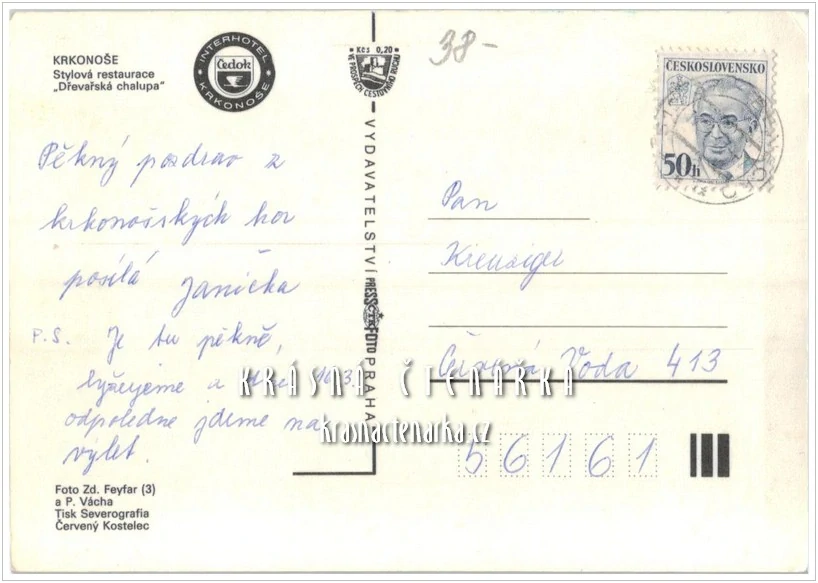 KRKONOŠE
Stylová restaurace
„Dřevařská chalupa“
INTERHOTEL
Čedok
KRKONOŠE
Kčs 0,20
VE PROSPĚCH CESTOVNÍHO RUCHU
38-
ČESKOSLOVENSKO
50h
Pěkný pozdrav z
krkonošských hor
posílá Janička
P.S. Je tu pěkně,
lyžujeme a dnes 16.3.
odpoledne jdeme na
výlet.
VYDAVATELSTVÍ PRESSFOTO PRAHA
Pan
Kreuziger
Červená Voda 413
56161
KRÁSNÁ ČTENÁŘKA
krasnactenarka.cz
Foto Zd. Feyfar (3)
a P. Vácha
Tisk Severografia
Červený Kostelec